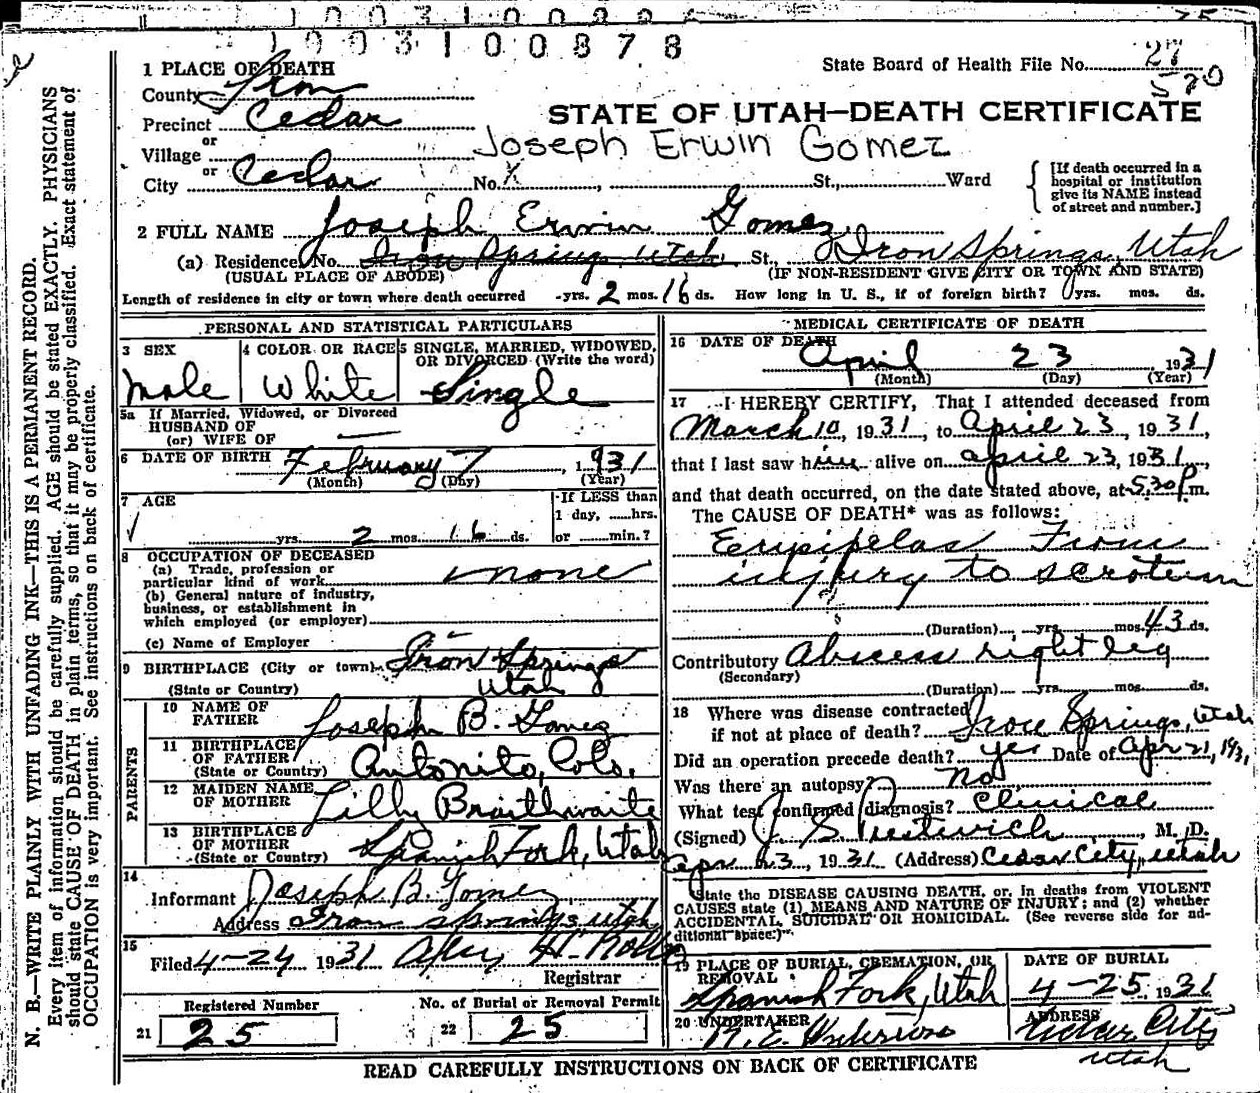 1003100878
State Board of Health File No. 27
520
1 PLACE OF DEATH
County Iron
Precinct Cedar
or
Village
or
City Cedar No. X, St., Ward
STATE OF UTAH—DEATH CERTIFICATE
Joseph Erwin Gomez
[If death occurred in a
hospital or institution
give its NAME instead
of street and number.]
2 FULL NAME Joseph Erwin Gomez
(a) Residence, No. Iron Springs, Utah. St., Iron Springs, Utah
(USUAL PLACE OF ABODE) (IF NON-RESIDENT GIVE CITY OR TOWN AND STATE)
Length of residence in city or town where death occurred -yrs. 2 mos. 16 ds. How long in U. S., if of foreign birth? yrs. mos. ds.
PERSONAL AND STATISTICAL PARTICULARS
3 SEX
Male
4 COLOR OR RACE
White
5 SINGLE, MARRIED, WIDOWED,
OR DIVORCED (Write the word)
Single
5a If Married, Widowed, or Divorced
HUSBAND OF
(or) WIFE OF —
6 DATE OF BIRTH February 7, 1931
(Month) (Day) (Year)
7 AGE
yrs. 2 mos. 16 ds.
If LESS than
1 day, ......hrs.
or ......min.?
8 OCCUPATION OF DECEASED
(a) Trade, profession or
particular kind of work none
(b) General nature of industry,
business, or establishment in
which employed (or employer)
(c) Name of Employer
9 BIRTHPLACE (City or town) Iron Springs
(State or Country) Utah
PARENTS
10 NAME OF
FATHER Joseph B. Gomez
11 BIRTHPLACE
OF FATHER
(State or Country) Antonito, Colo.
12 MAIDEN NAME
OF MOTHER Lilly Braithwaite
13 BIRTHPLACE
OF MOTHER
(State or Country) Spanish Fork, Utah
14
Informant Joseph B. Gomez
Address Iron Springs Utah
15
Filed 4-24 1931
Registrar
Registered Number
21 25
No. of Burial or Removal Permit
22 25
MEDICAL CERTIFICATE OF DEATH
16 DATE OF DEATH
April 23 1931
(Month) (Day) (Year)
17 I HEREBY CERTIFY, That I attended deceased from
March 10, 1931, to April 23, 1931,
that I last saw him alive on April 23, 1931,
and that death occurred, on the date stated above, at 5:30 P.m.
The CAUSE OF DEATH* was as follows:
Erisipelas From
injury to scrotum
(Duration) yrs. mos. 43 ds.
Contributory Abscess right leg
(Secondary)
(Duration) yrs. mos. ds.
18 Where was disease contracted
if not at place of death? Iron Springs, Utah
Did an operation precede death? yes Date of Apr 21, 1931
Was there an autopsy? No
What test confirmed diagnosis? Clinical
(Signed) J. S. Prestwich, M. D.
Apr 23, 1931 (Address) Cedar City, Utah
State the DISEASE CAUSING DEATH, or, in deaths from VIOLENT
CAUSES state (1) MEANS AND NATURE OF INJURY; and (2) whether
ACCIDENTAL, SUICIDAL OR HOMICIDAL. (See reverse side for ad-
ditional space.)
19 PLACE OF BURIAL, CREMATION, OR
REMOVAL
Spanish Fork, Utah
DATE OF BURIAL
4-25, 1931
20 UNDERTAKER
ADDRESS
Cedar City
Utah
READ CAREFULLY INSTRUCTIONS ON BACK OF CERTIFICATE
N. B.—WRITE PLAINLY WITH UNFADING INK—THIS IS A PERMANENT RECORD.
Every item of information should be carefully supplied. AGE should be stated EXACTLY. PHYSICIANS
should state CAUSE OF DEATH in plain terms, so that it may be properly classified. Exact statement of
OCCUPATION is very important. See instructions on back of certificate.